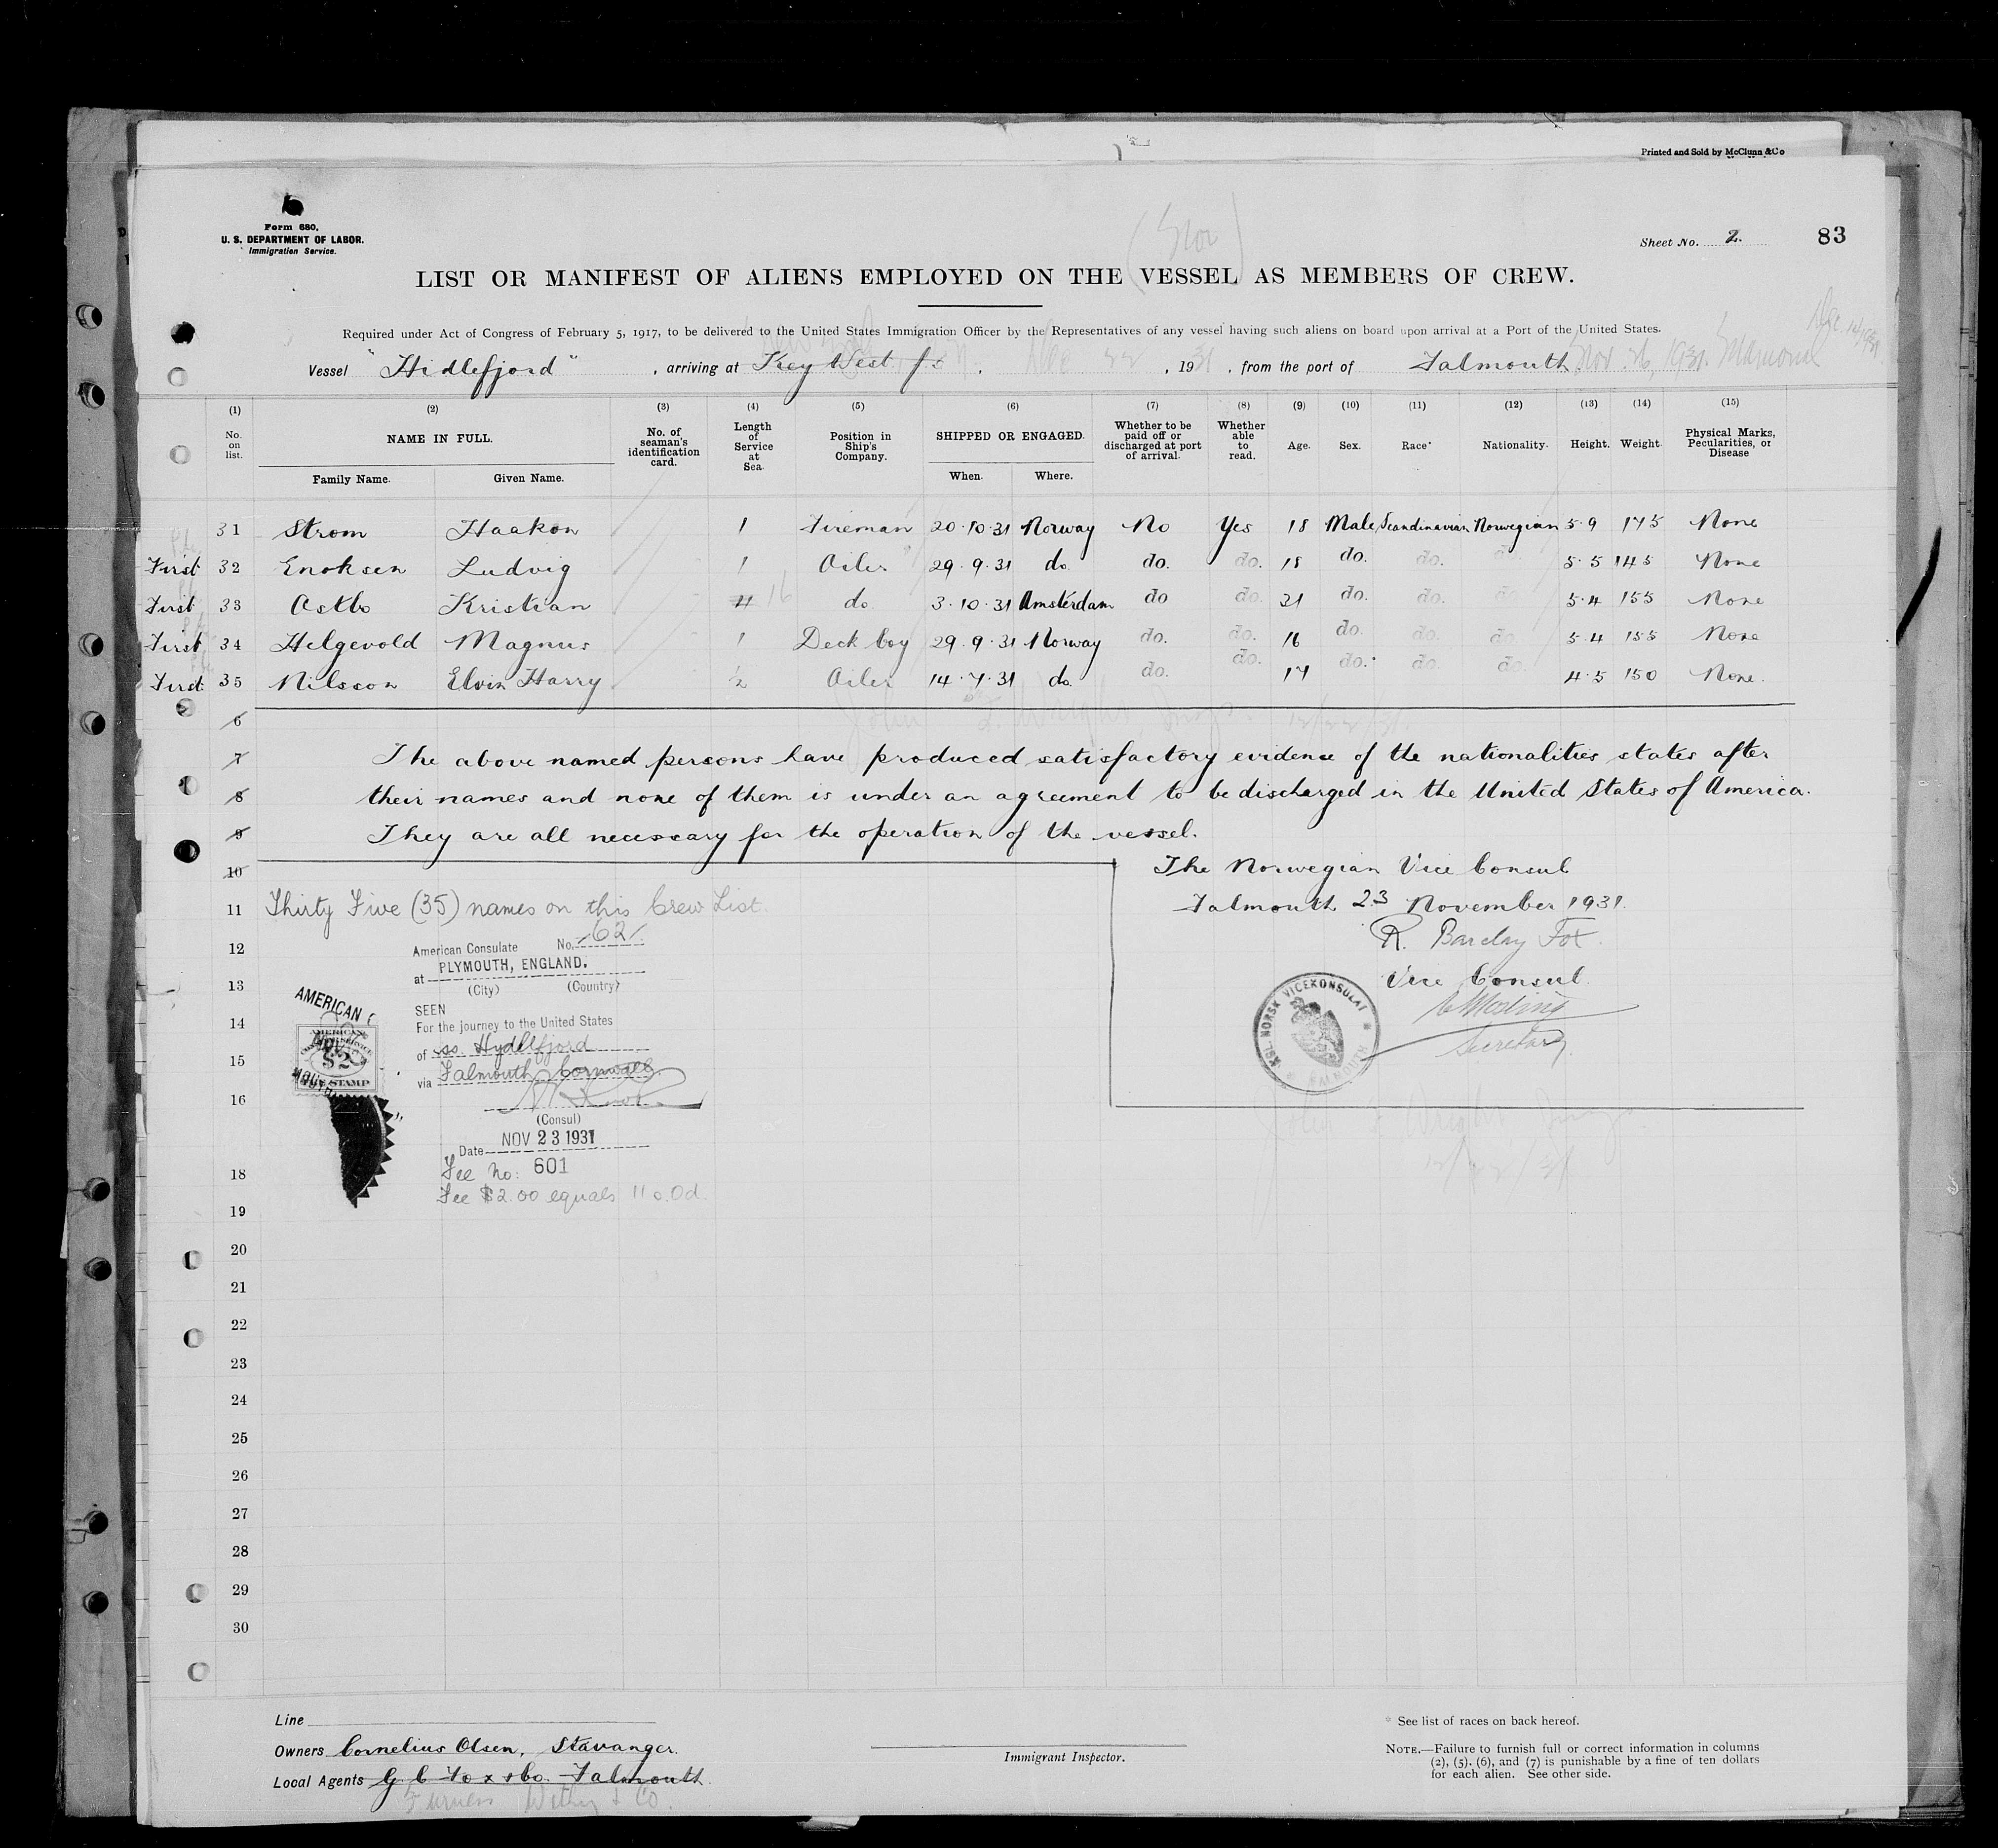 Printed and Sold by McClunn &Co
Form 680,
U. S. DEPARTMENT OF LABOR.
Immigration Service.
Sheet No. 2. 83
LIST OR MANIFEST OF ALIENS EMPLOYED ON THE VESSEL AS MEMBERS OF CREW.
Required under Act of Congress of February 5, 1917, to be delivered to the United States Immigration Officer by the Representatives of any vessel having such aliens on board upon arrival at a Port of the United States.
Vessel "Hidlefjord", arriving at Key West f. , Dec 22, 1931, from the port of Falmouth. Nov. 26, 1931.
(1) (2) (3) (4) (5) (6) (7) (8) (9) (10) (11) (12) (13) (14) (15)
No. on list. NAME IN FULL. No. of seaman's identification card. Length of Service at Sea. Position in Ship's Company. SHIPPED OR ENGAGED. Whether to be paid off or discharged at port of arrival. Whether able to read. Age. Sex. Race* Nationality. Height. Weight. Physical Marks, Pecularities, or Disease
Family Name. Given Name. When. Where.
31 Strom Haakon 1 Fireman 20.10.31 Norway No Yes 18 Male Scandinavian Norwegian 5.9 175 None
First 32 Enoksen Ludvig 1 Oiler 29.9.31 do. do. do. 18 do. do. do. 5.5 145 None
First 33 Ostbo Kristian 16 do 3.10.31 Amsterdam do do. 21 do. do. do. 5.4 155 None
First 34 Helgevold Magnus 1 Deck boy 29.9.31 Norway do. do. 16 do. do. do. 5.4 155 None
First 35 Nilsson Elvin Harry ½ Oiler 14.7.31 do. do. do. 17 do. do. do. 4.5 150 None.
6
7 The above named persons have produced satisfactory evidence of the nationalities states after
8 their names and none of them is under an agreement to be discharged in the United States of America.
9 They are all necessary for the operation of the vessel.
10 The Norwegian Vice Consul
11 Thirty Five (35) names on this Crew List. Falmouth 23 November 1931.
R. Barclay Fox.
Vice Consul.
Secretary
KGL. NORSK VICEKONSULAT
FALMOUTH
12 American Consulate No. 62
at PLYMOUTH, ENGLAND.
13 (City) (Country)
AMERICAN
SEEN
14 For the journey to the United States
of ss. Hydlefjord
15 via Falmouth Cornwall
AMERICAN
CONSULAR SERVICE
$2
FEE STAMP
16
(Consul)
Date NOV 23 1931
18 Fee No: 601
Fee $2.00 equals 11s.0d.
19
20
21
22
23
24
25
26
27
28
29
30
Line
Owners Cornelius Olsen, Stavanger.
Local Agents G C Fox & Co. Falmouth
Furness Withy & Co.
Immigrant Inspector.
* See list of races on back hereof.
NOTE.—Failure to furnish full or correct information in columns
(2), (5), (6), and (7) is punishable by a fine of ten dollars
for each alien. See other side.